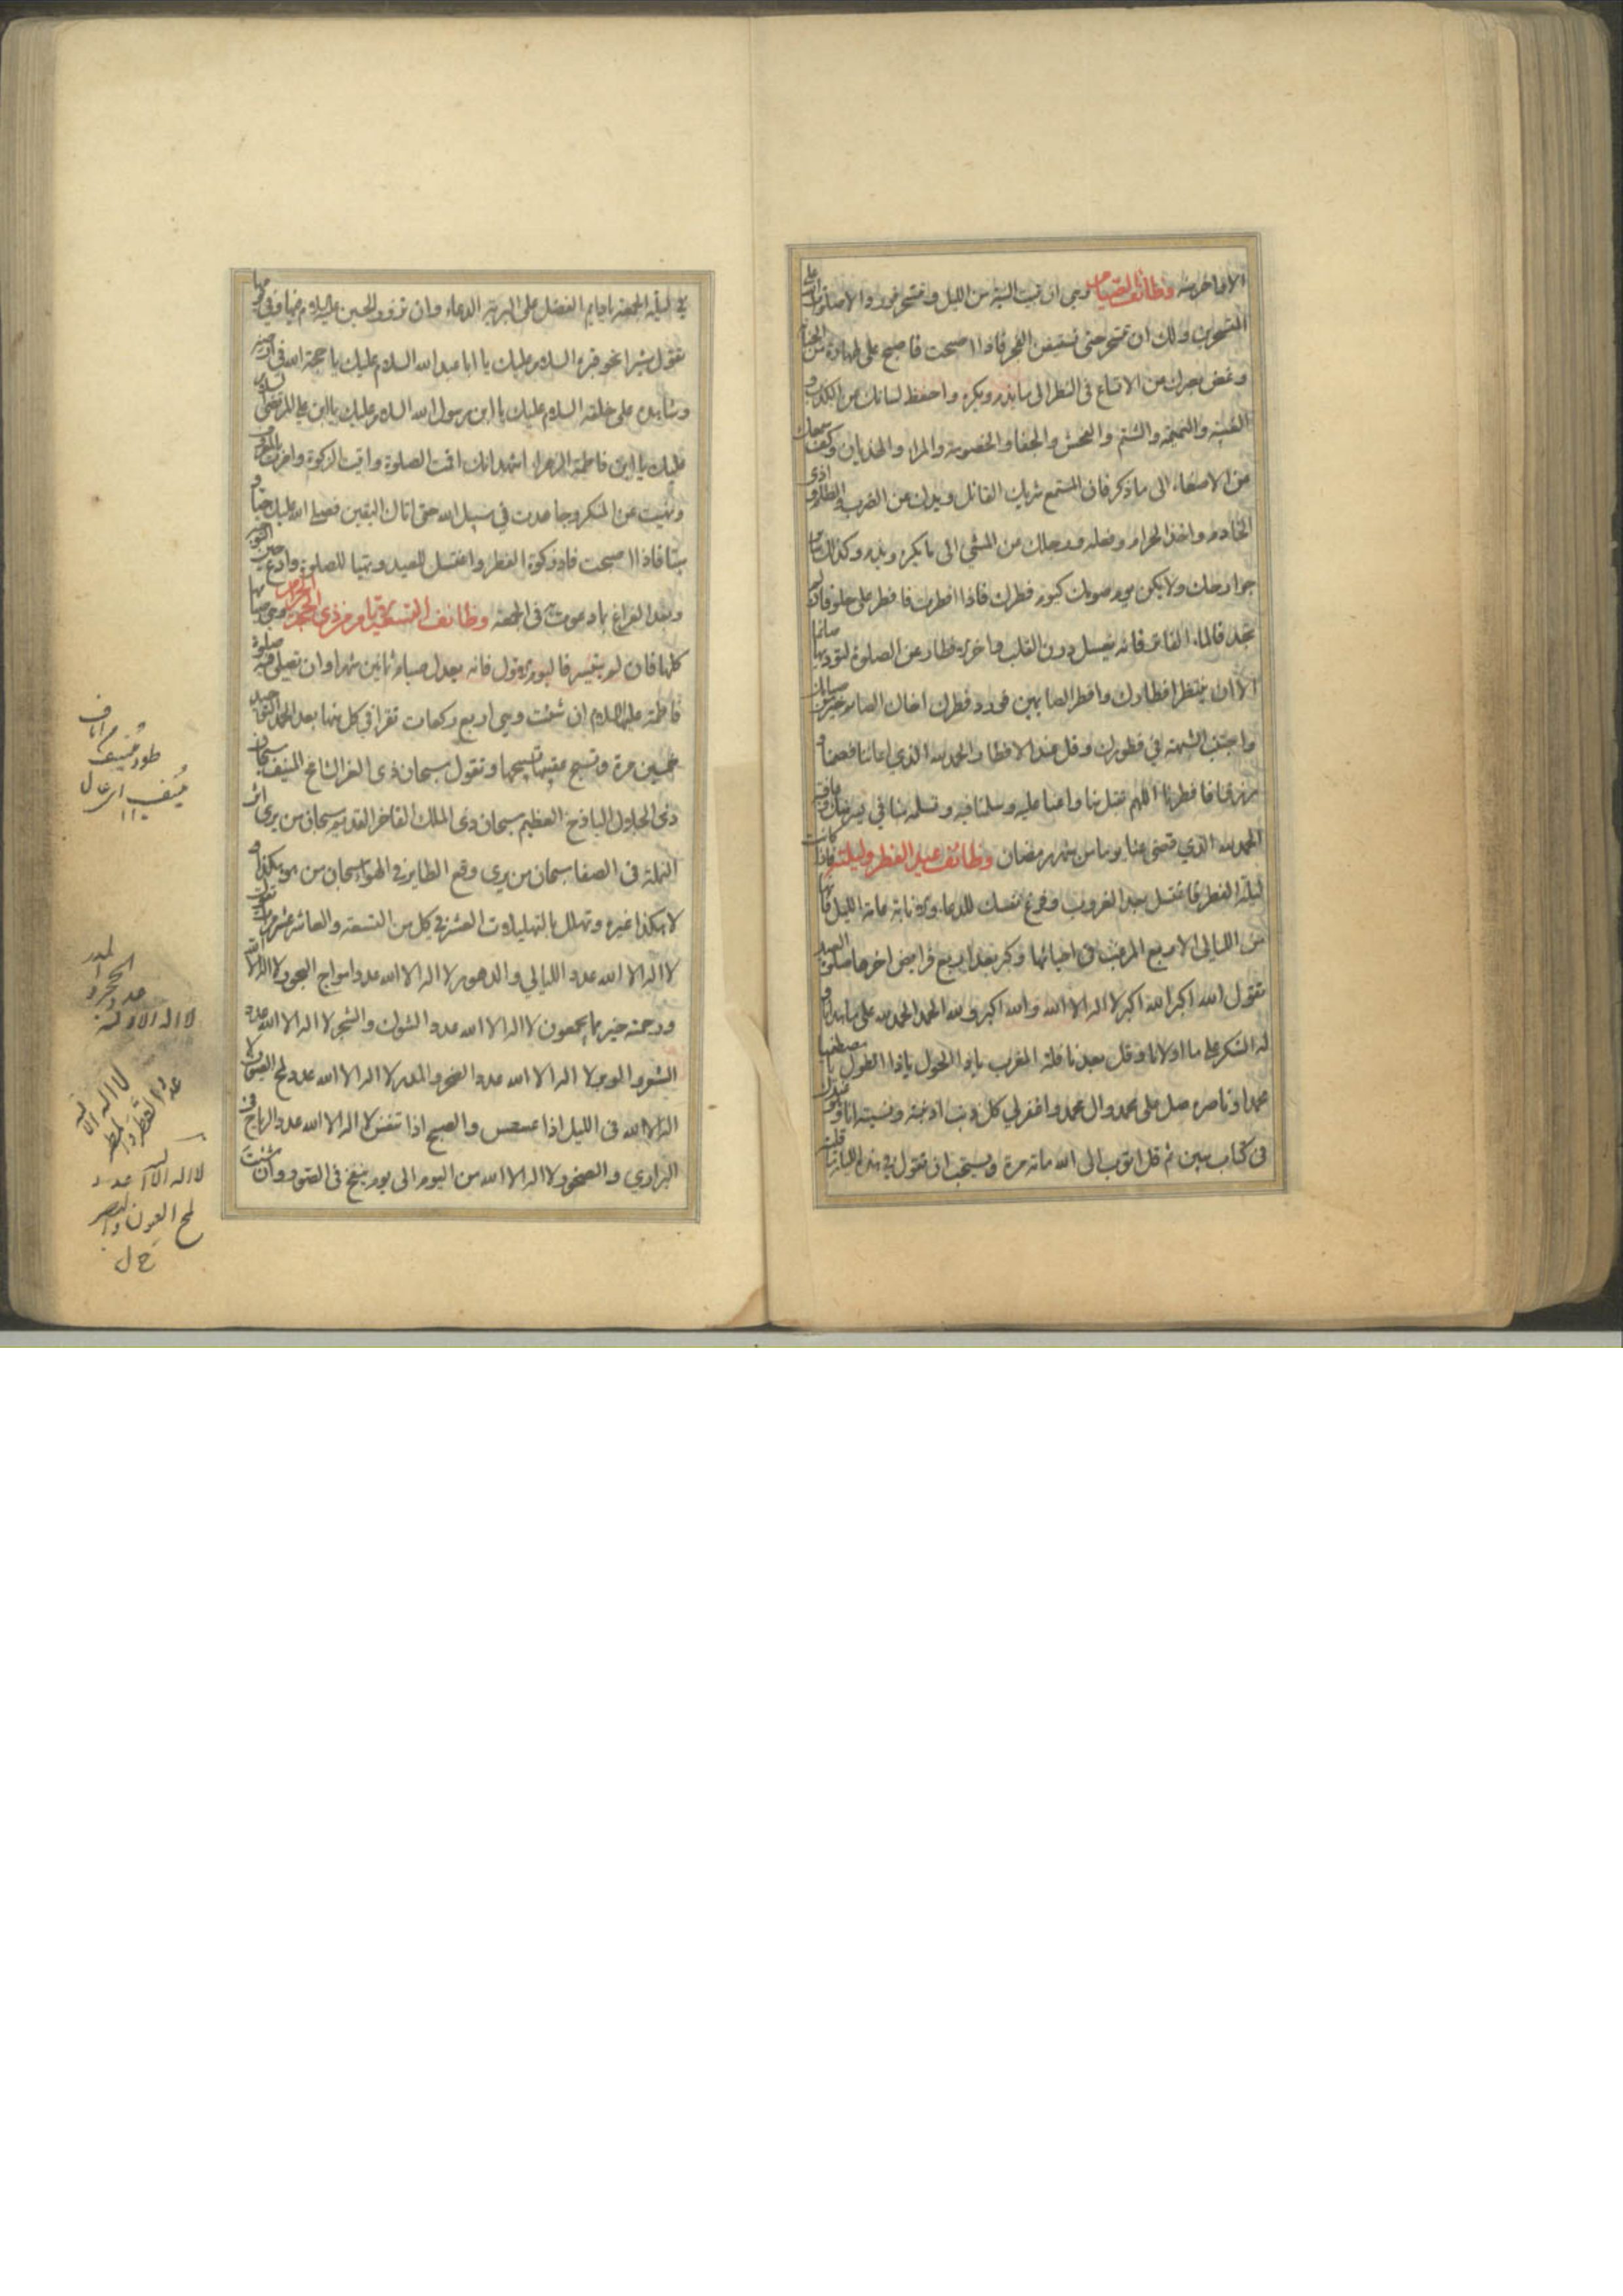 الا فاخرته وظائف الصيام وهي ان تبيت النية من الليل وتتسحر فورد ان الله صلوات على
المتسحرين ولك ان تتسحر حتى تستيقن الفجر فاذا اصبحت فاصبح على طهارة من الجنابة
وغض بصرك من الاتساع في النظر الى ما يذم ويكره واحفظ لسانك من الكذب و
الغيبة والنميمة والشتم والفحش والجفا والخصومة والمراء والهذيان وكف سمعك
من الاصغاء الى ما ذكر فان المستمع شريك القائل ويدك عن الضرب والظلم و اذى
الخادم واخذ الحرام وفعله ورجلك من المشي الى ما يكره ويذم وكذلك سائر
جوارحك ولا يكن يوم صومك كيوم فطرك فاذا افطرت فافطر على حلو فان لم
تجد فالماء الفاتر فانه يغسل درن القلب واخر افطارك عن الصلوة لتؤديها صائما
الا ان ينتظر افطارك وافطر الصايمين فورد فطرك اخاك الصائم خير من صيامك
واجتنب الشبهة في فطورك وقل عند الافطار الحمد لله الذي اعاننا فصمنا و
رزقنا فافطرنا اللهم تقبل منا واعنا عليه وسلمنا فيه وتسلمه منا في يسر منك وعافية
الحمد لله الذي قضى عنا يوما من شهر رمضان وظائف عيد الفطر وليلته فاذا كانت
ليلة الفطر فاغتسل بعد الغروب وفرغ نفسك للدعاء عامة الليل فانها
من الليالي الاربع المرغب في احيائها وكبر بعد اربع فرايض اخرها صلوة العيد
تقول الله اكبر الله اكبر لا اله الا الله والله اكبر ولله الحمد الحمد لله على ما هدانا و
له الشكر على ما اولانا وقل بعد نافلة المغرب يا ذا الحول يا ذا الطول يا مصطفيا
محمدا وناصره صل على محمد وال محمد واغفر لي كل ذنب اذنبته ونسيته انا وهو عندك
في كتاب مبين ثم قل اتوب الى الله مائة مرة ويستحب ان تقول في هذه الليلة
في ليلة الجمعة يا دايم الفضل على البرية الدعاء وان تزور الحسين عليه السلام فيها وفي يومها
تقول مشيرا نحو قبره السلام عليك يا ابا عبد الله السلام عليك يا حجة الله في ارضه
وشاهده على خلقه السلام عليك يا ابن رسول الله السلام عليك يا ابن علي المرتضى السلام
عليك يا ابن فاطمة الزهراء اشهد انك اقمت الصلوة واتيت الزكوة وامرت بالمعروف
ونهيت عن المنكر وجاهدت في سبيل الله حتى اتاك اليقين فصلى الله عليك حيا و
ميتا فاذا اصبحت فاد زكوة الفطر واغتسل للعيد وتهيا للصلوة وادع حين التوجه
وبعد الفراغ بادعوت في الجمعة وظائف التسعة الايام من ذي الحجة الحرام وهي صيامها
كلها فان لم يتيسر فاليوم الاول فانه يعدل صيام ثمانين شهرا وان تصلي فيه صلوة
فاطمة عليها السلام ان شئت وهي اربع ركعات تقرا في كل منها بعد الحمد التوحيد
خمسين مرة وتسبح عقيبها تسبيحها وتقول سبحان ذي العز الشامخ المنيف سبحان
ذي الجلال الباذخ العظيم سبحان ذي الملك الفاخر القديم سبحان من يرى اثر
النملة في الصفا سبحان من يرى وقع الطاير في الهوا سبحان من هو هكذا و
لا هكذا غيره وتهلل بالتهليلات العشر في كل من التسعة والعاشر عشر مرات تقول
لا اله الا الله عدد الليالي والدهور لا اله الا الله عدد امواج البحور لا اله الا الله
ورحمته خير مما يجمعون لا اله الا الله عدد الشوك والشجر لا اله الا الله عدد
الشعر والوبر لا اله الا الله عدد الحجر والمدر لا اله الا الله عدد لمح العيون لا
اله الا الله في الليل اذا عسعس والصبح اذا تنفس لا اله الا الله عدد الرياح في
البراري والصخور لا اله الا الله من اليوم الى يوم ينفخ في الصور وان شئت
لا اله الا الله
عدد الحجر و
المدر
لا اله الا الله
عدد القطر والمطر
لا اله الا الله عدد
لمح العيون والبصر